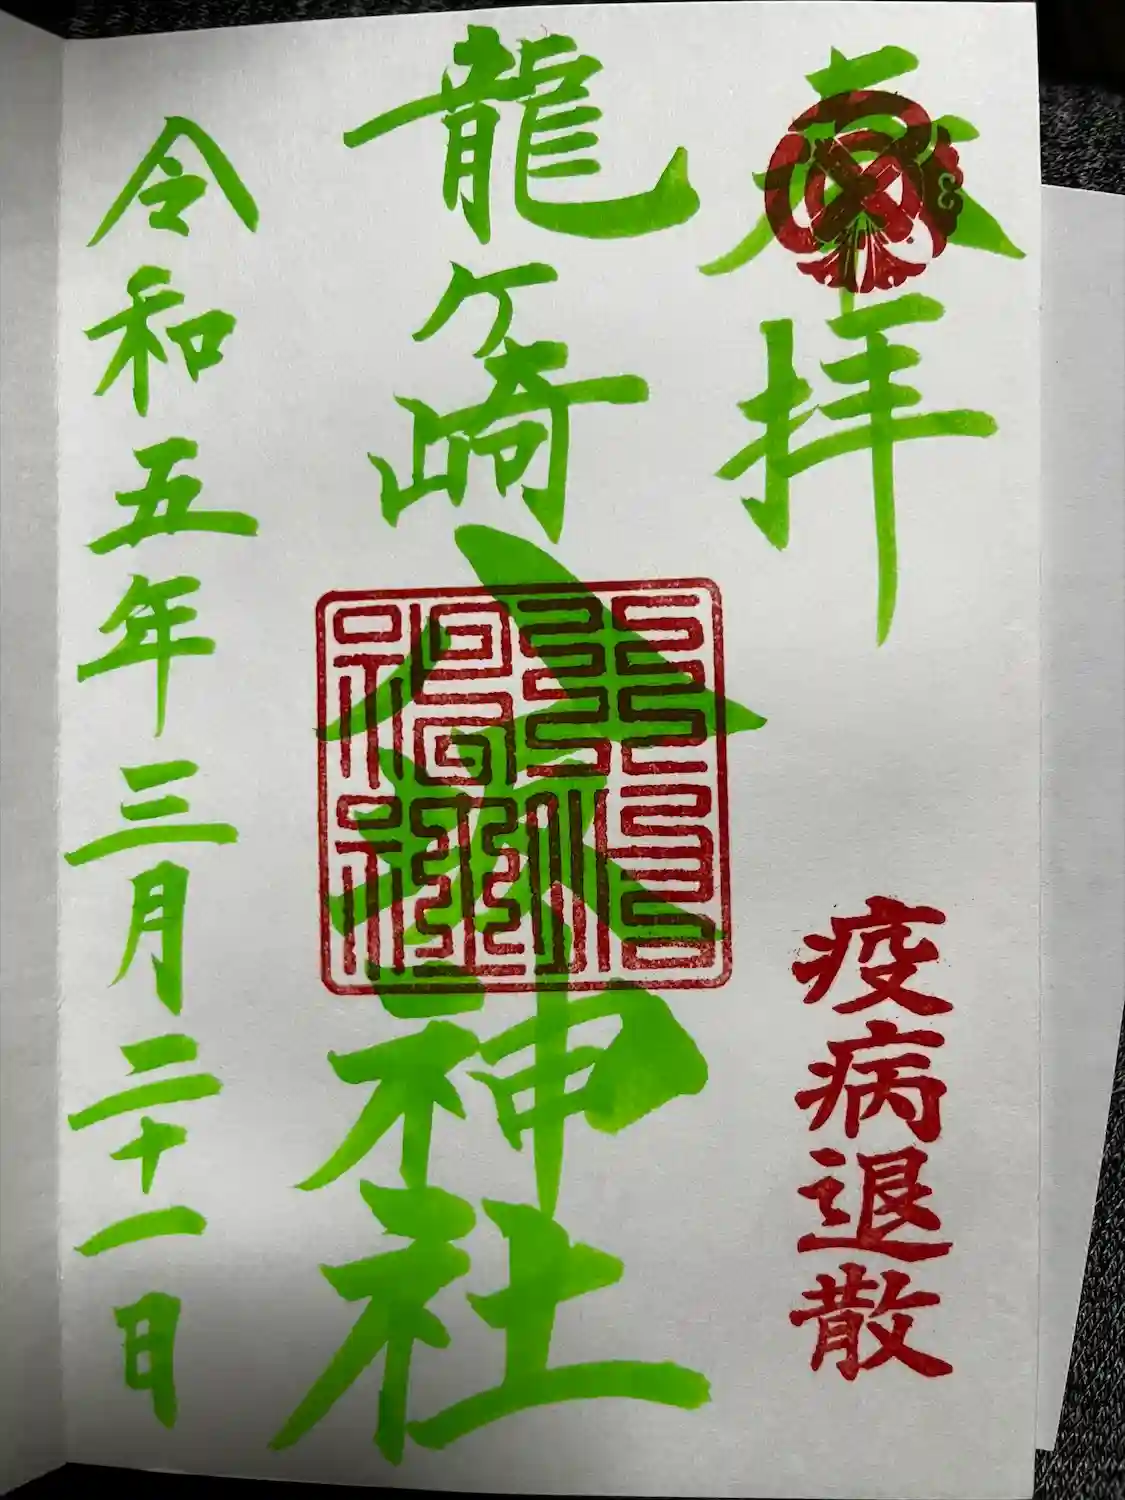 奉拝
疫病退散
龍ケ崎八坂神社
令和五年三月二十一日